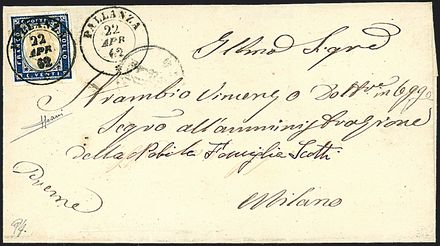 PALLANZA
22
APR
62
22
APR
62
C. VENTI
Illmo Sigre
Strambio Vincenzo Dottre in Legge
Segro all'amministrazione
della Nobile Famiglia Scotti
Preme
Milano